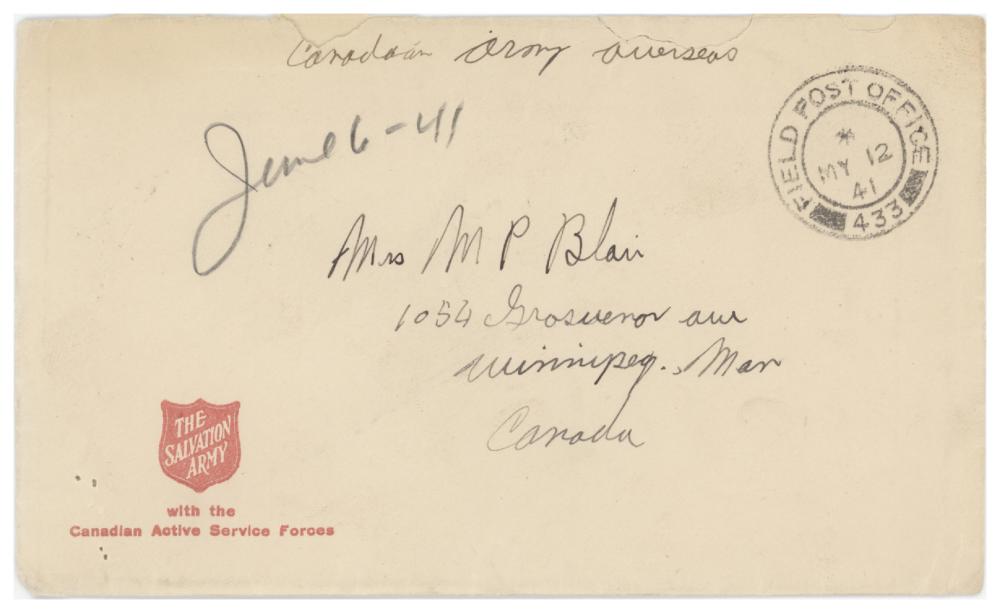 Canadian Army overseas
June 6-41
FIELD POST OFFICE
*
MY 12
41
433
Mrs M P Blair
1054 Grosvenor ave
Winnipeg. Man
Canada
THE
SALVATION
ARMY
with the
Canadian Active Service Forces